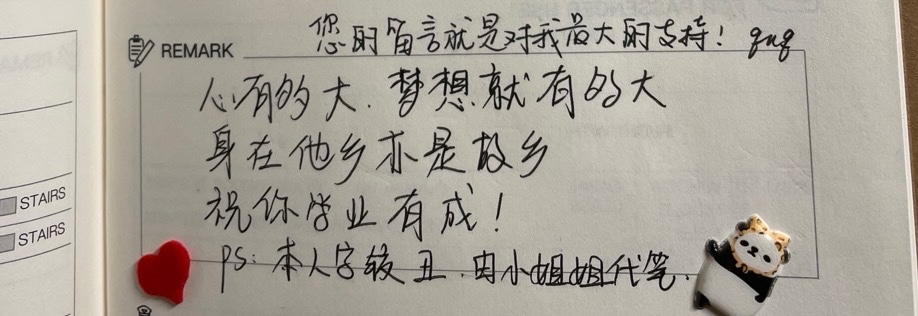 您的留言就是对我最大的支持！quq
REMARK
心有的大.梦想就有的大
身在他乡亦是故乡
祝你学业有成！
PS:本人字较丑.由小姐姐代笔.
STAIRS
STAIRS